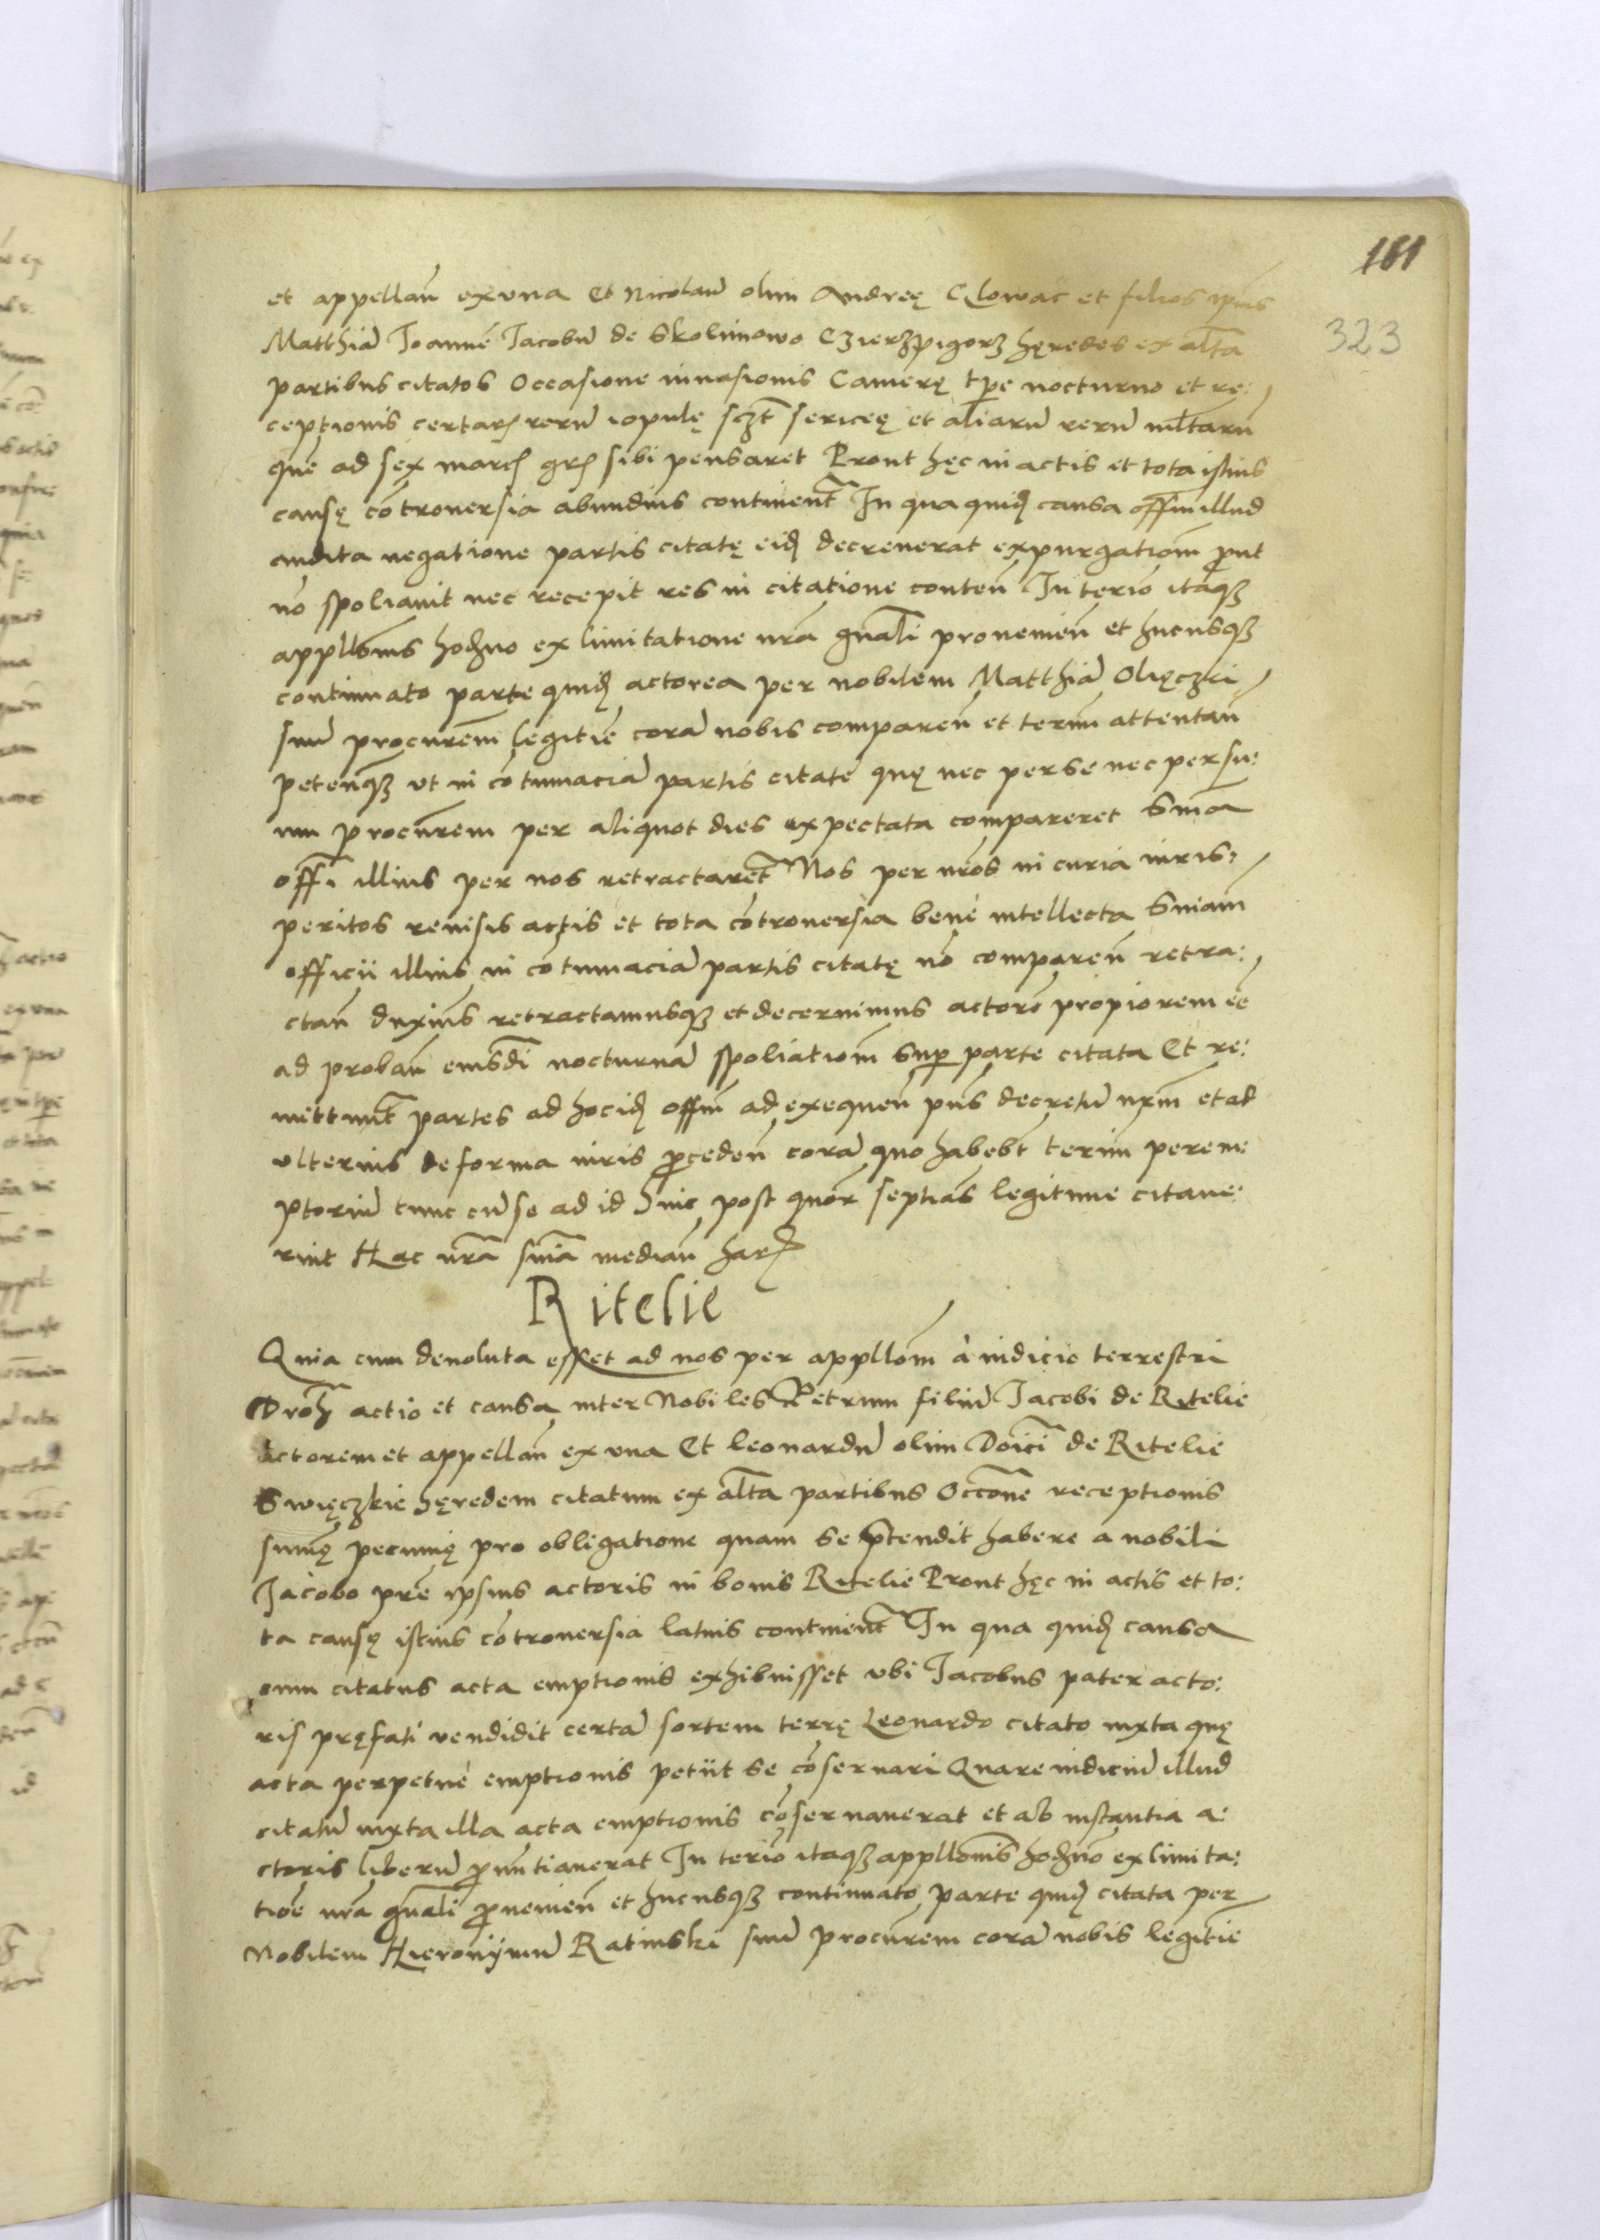 161
323
et appellan̄ ex vna Et Nicolaū olim Andreę Glowacz et filios ipīus
Matthiā Joannē Jacobū de Skolimowo Czierzpigorz hęredes ex alt̄a
partibus citatos Occasione inuasionis Camerę tp̄e nocturno et re:
ceptionis certar̄ rerū iopulę sczt̄ sericeę et aliarū rerū mltarū
que ad sex marc̄ gr̄ sibi pensaret Prout hęc in actis et tota istius
causę cōtrouersia abundius continent̄ In qua quid̄ causa off̄m illud
audita negatione partis citatę eid̄ decreuerat expurgatiom̄ p̄ut
nō spoliauit nec recepit res in citatione conten̄ In termō itaq₃
appll̄onis hod̄no ex limitatione nr̄a gn̄ali prouenien̄ et hucusq₃
continuato parte quid̄ actorea per nobilem Matthiā Olięczki
suū procur̄em legitīe corā nobis comparen̄ et term̄ attentan̄
peten̄q₃ vt in cōtumaciā partis citatę quę nec per se nec per su:
um procur̄em per aliquot dies expectata compareret Sn̄ia
off̄i illius per nos retractaret̄ Nos per nr̄os in curia iuris:
peritos reuisis actis et tota cōtrouersia bene intellecta Sn̄iam
officii illius in cōtumaciā partis citatę nō comparen̄ retra:
ctan̄ duxim̄s retractamusq₃ et decernimus actorē propiorem ēē
ad proban̄ eiusd̄i nocturnā spoliatiom̄ sup̄ parte citata Et re:
mittunt̄ partes ad hoc id̄ off̄m ad exequen̄ pn̄s decretū nr̄m et ad
vlterius de forma iuris p̄ceden̄ corā quo habebt̄ termī perem:
ptoriū tunc cū se ad id hinc post quor̄ septian̄s legitime citaue:
rint Hac nr̄a sn̄ia median̄ har̄
Ritelie
Quia cum deuoluta esset ad nos per appll̄om̄ à iudicio terrestri
Droh̄ actio et causa inter Nobiles Petrum filiū Jacobi de Ritelie
actorem et appellan̄ ex vna Et Leonardū olim Doīci de Ritelie
Swięczkie hęredem citatum ex alt̄a partibus Occōne receptionis
sum̄ę pecunię pro obligatione quam se p̄tendit habere a nobili
Jacobo pr̄e ipsius actoris in bonis Ritelie Prout hęc in actis et to:
ta causę istius cōtrouersia latius continent̄ In qua quid̄ causa
cum citatus acta emptionis exhibuisset vbi Jacobus pater acto:
ris pręfati vendidit certā sortem terrę Leonardo citato iuxta quę
acta perpetuę emptionis petiit se cōseruari Quare iudiciū illud
citatū iuxta illa acta emptionis cōseruauerat et ab instantia a:
ctoris liberū p̄nuntiauerat In termō itaq₃ appll̄onis hod̄no ex limita:
tiōe nr̄a gn̄ali p̄uenien̄ et hucusq₃ continuato parte quid̄ citata per
Nobilem Hieronÿmū Ratinski suū procur̄em corā nobis legitīe